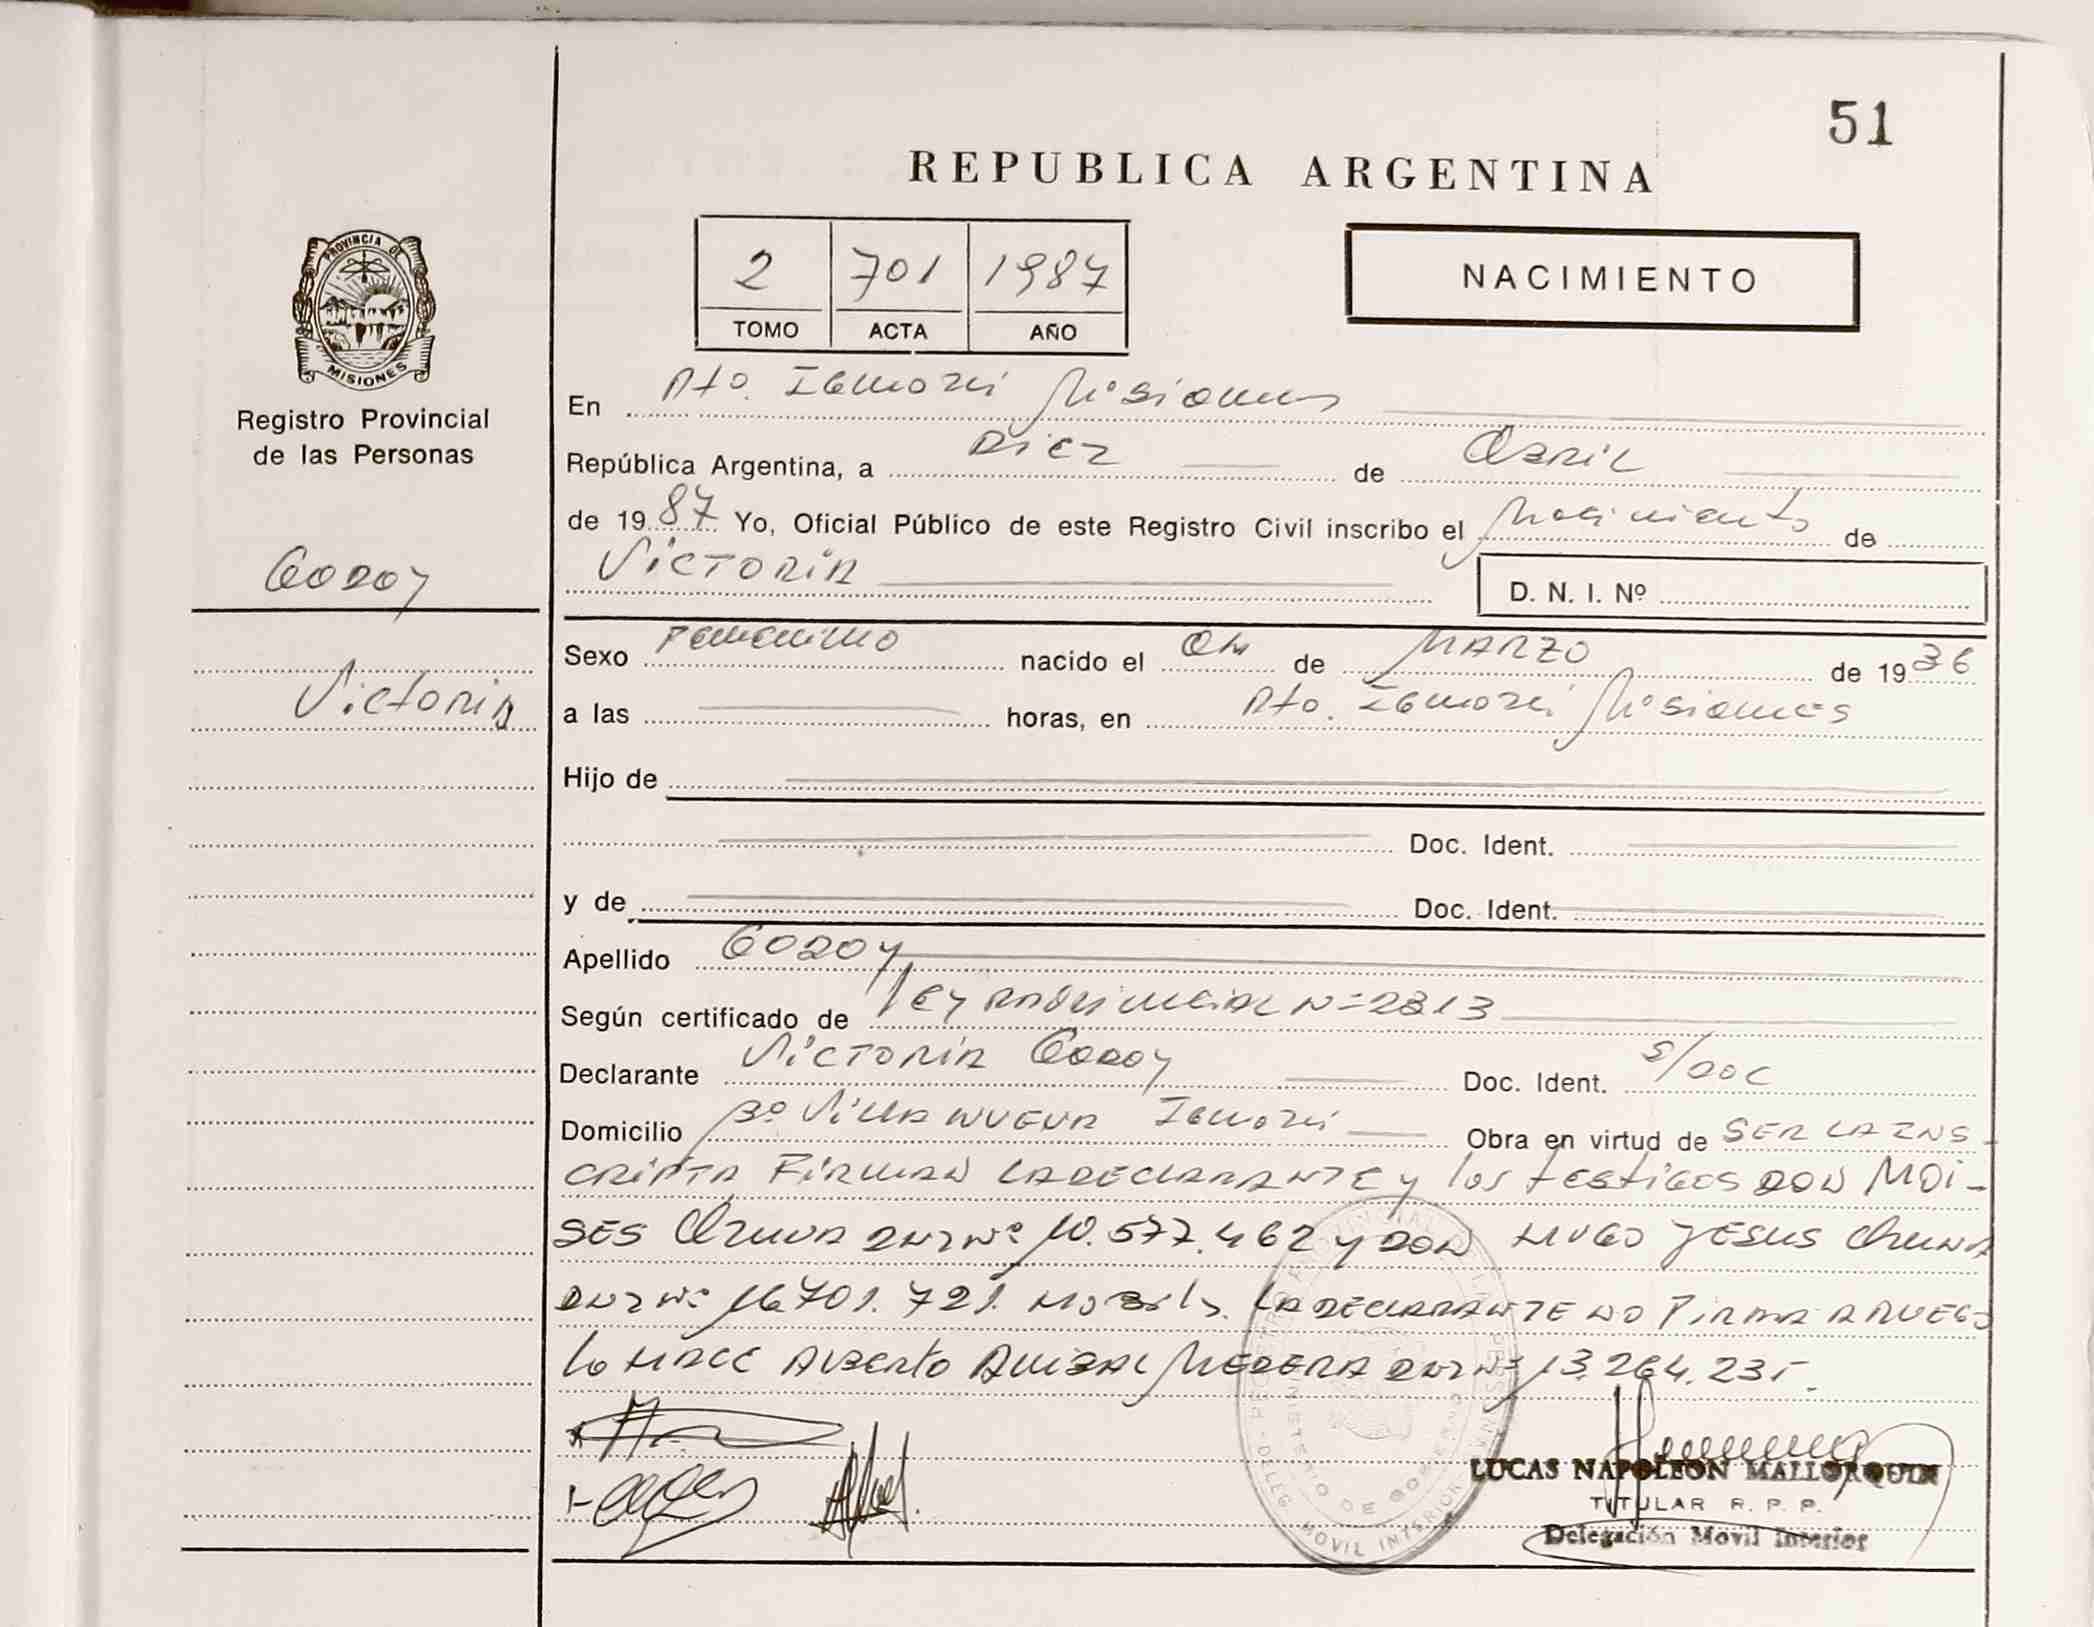 51
REPUBLICA ARGENTINA
2 701 1987
TOMO ACTA AÑO
NACIMIENTO
PROVINCIA DE
MISIONES
Registro Provincial
de las Personas
Godoy
Victoria
En Pto. Iguazú Misiones
República Argentina, a Diez de Abril
de 1987 Yo, Oficial Público de este Registro Civil inscribo el Nacimiento de
Victoria D. N. I. Nº
Sexo Femenino nacido el de Marzo de 1936
a las horas, en Pto. Iguazú Misiones
Hijo de
Doc. Ident.
y de Doc. Ident.
Apellido Godoy
Según certificado de Ley Provincial Nº 2313
Declarante Victoria Godoy Doc. Ident. s/Doc
Domicilio Bº Villa Nueva Iguazú Obra en virtud de ser la ins-
cripta Firman la declarante y los testigos don Moi-
ses DNI Nº 10.577.462 y don Hugo Jesus
DNI Nº 16.701.721. La declarante no firma a ruego
lo hace Alberto Anibal DNI Nº 13.264.235.
LUCAS NAPOLEON MALLORQUIN
TITULAR R. P. P.
Delegación Movil Interior